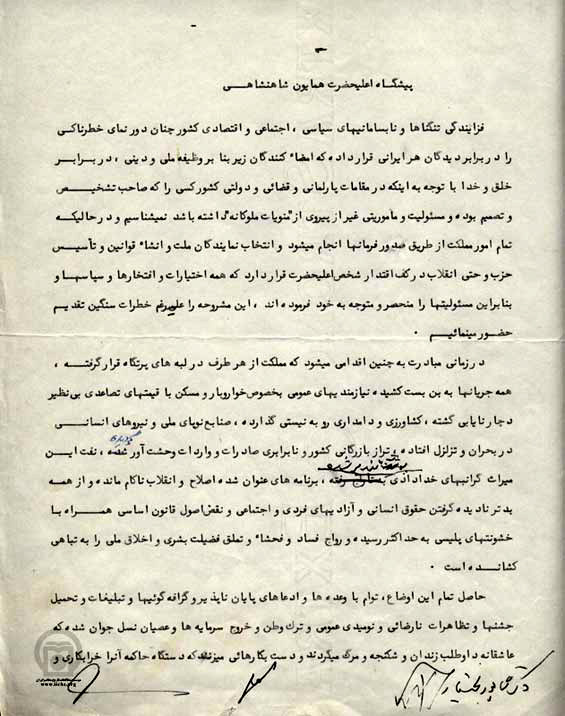 پیشگاه اعلیحضرت همایون شاهنشاهی
فزایندگی تنگناها و نابسامانیهای سیاسی ، اجتماعی و اقتصادی کشور چنان دورنمای خطرناکی
را در برابر دیدگان هر ایرانی قرار داده که امضاء کنندگان زیر بنا بر وظیفه ملی و دینی ، در برابر
خلق و خدا با توجه به اینکه در مقامات پارلمانی و قضائی و دولتی کشور کسی را که صاحب تشخیص
و تصمیم بوده و مسئولیت و ماموریتی غیر از پیروی از "منویات ملوکانه" داشته باشد نمیشناسیم و در حالیکه
تمام امور مملکت از طریق صدور فرمانها انجام میشود و انتخاب نمایندگان ملت و انشاء قوانین و تأسیس
حزب و حتی انقلاب در کف اقتدار شخص اعلیحضرت قرار دارد که همه اختیارات و افتخارها و سپاسها و
بنابراین مسئولیتها را منحصر و متوجه به خود فرموده اند ، این مشروحه را علیرغم خطرات سنگین تقدیم
حضور مینمائیم .
در زمانی مبادرت به چنین اقدامی میشود که مملکت از هر طرف در لبه های پرتگاه قرار گرفته ،
همه جریانها به بن بست کشیده نیازمندیهای عمومی بخصوص خواروبار و مسکن با قیمتهای تصاعدی بی‌نظیر
دچار نایابی گشته ، کشاورزی و دامداری رو به نیستی گذارده ، صنایع نوپای ملی و نیروهای انسانی
در بحران و تزلزل افتاده ، تراز بازرگانی کشور و نابرابری صادرات و واردات وحشت آور شده ، نفت این
میراث گرانبهای خدادادی به رفته ، برنامه های عنوان شده اصلاح و انقلاب ناکام مانده و از همه
بدتر نادیده گرفتن حقوق انسانی و آزادیهای فردی و اجتماعی و نقض اصول قانون اساسی همراه با
خشونتهای پلیسی به حداکثر رسیده و رواج فساد و فحشاء و تملق فضیلت بشری و اخلاق ملی را به تباهی
کشانده است .
حاصل تمام این اوضاع ، توام با وعده ها و ادعاهای پایان ناپذیر و گزافه گوئیها و تبلیغات و تحمیل
جشنها و تظاهرات نارضائی و نومیدی عمومی و ترک وطن و خروج سرمایه ها و عصیان نسل جوان شده که
عاشقانه داوطلب زندان و شکنجه و مرگ میگردند و دست بکارهائی میزنند که دستگاه حاکمه آنرا خرابکاری و
دکتر شاپور بختیار